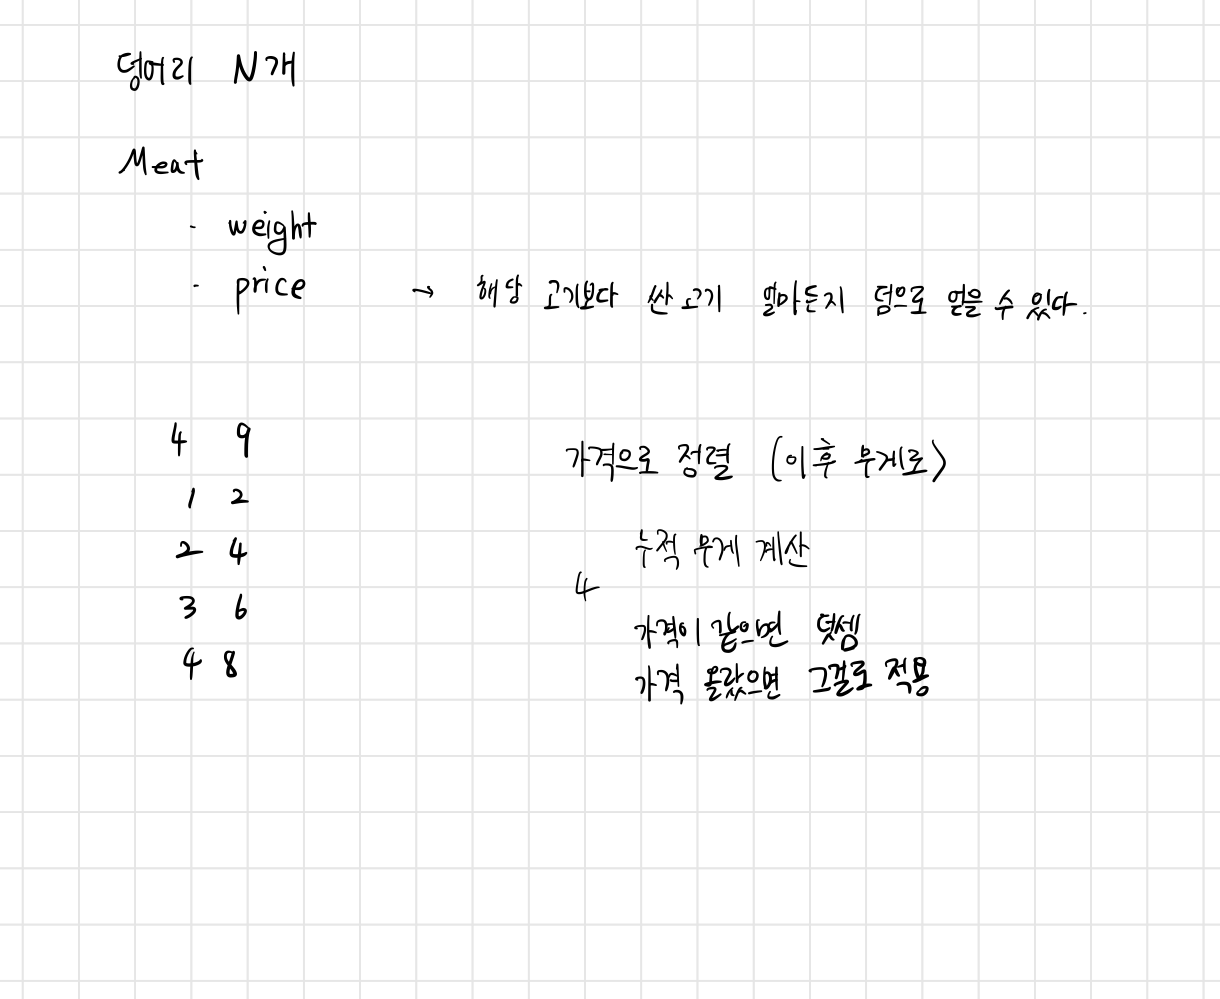 덩어리 N개
Meat
· weight
· price → 해당 고기보다 싼 고기 얼마든지 덤으로 얻을 수 있다.
4 9
1 2
2 4
3 6
4 8
가격으로 정렬 (이후 무게로)
누적 무게 계산
4
가격이 같으면 덧셈
가격 올랐으면 그걸로 적용